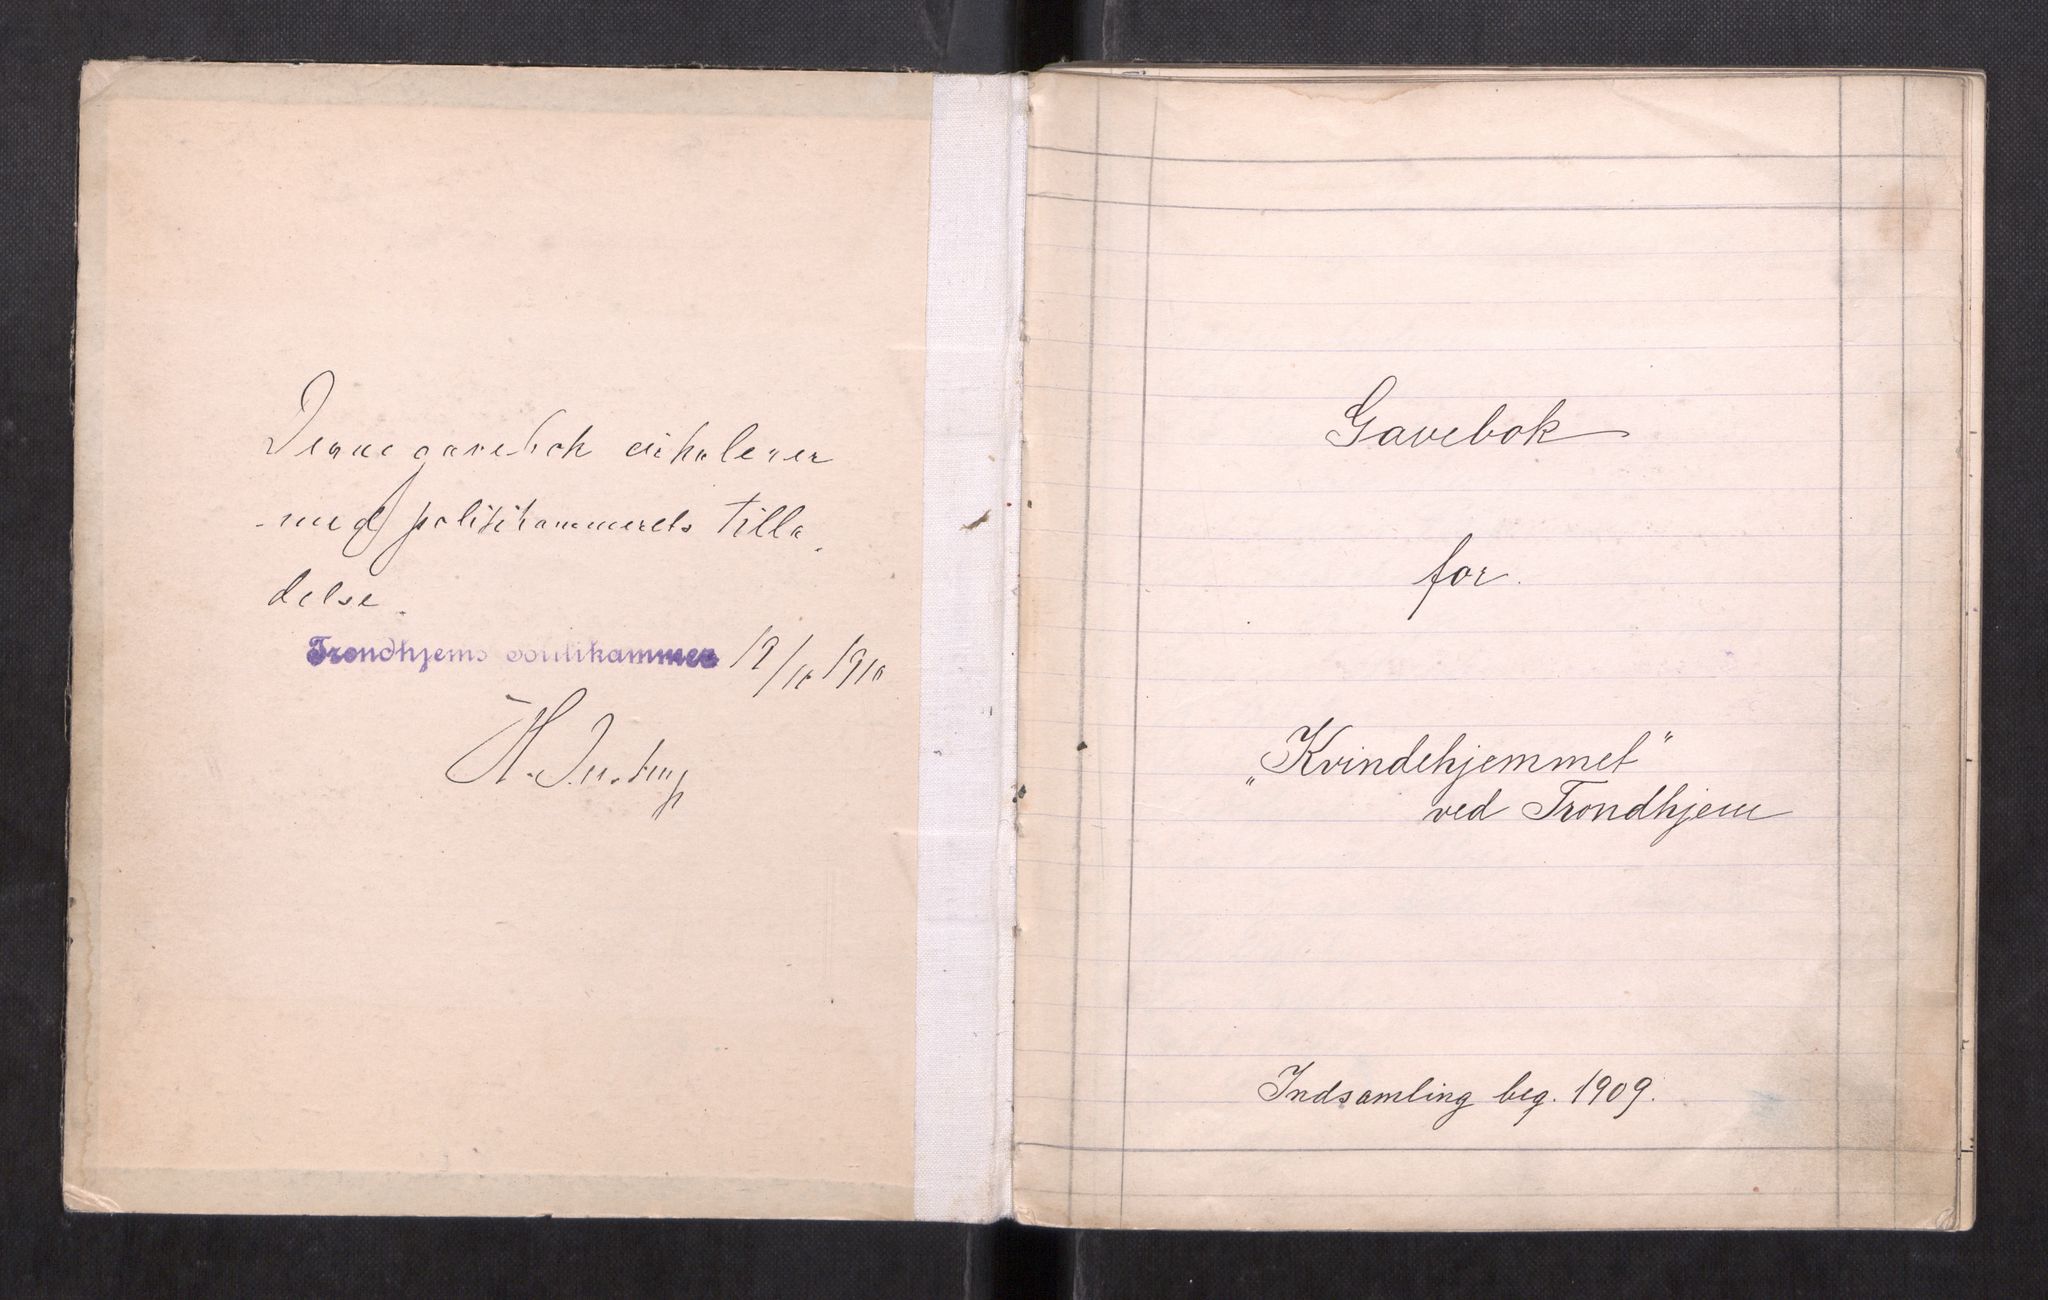 Denne gavebok cirkulerer
med politikammerets tilla
delse.
Trondhjems Politikammer 19/10 1910
Gavebok
for
„Kvindehjemmet"
ved Trondhjem
Indsamling beg. 1909.